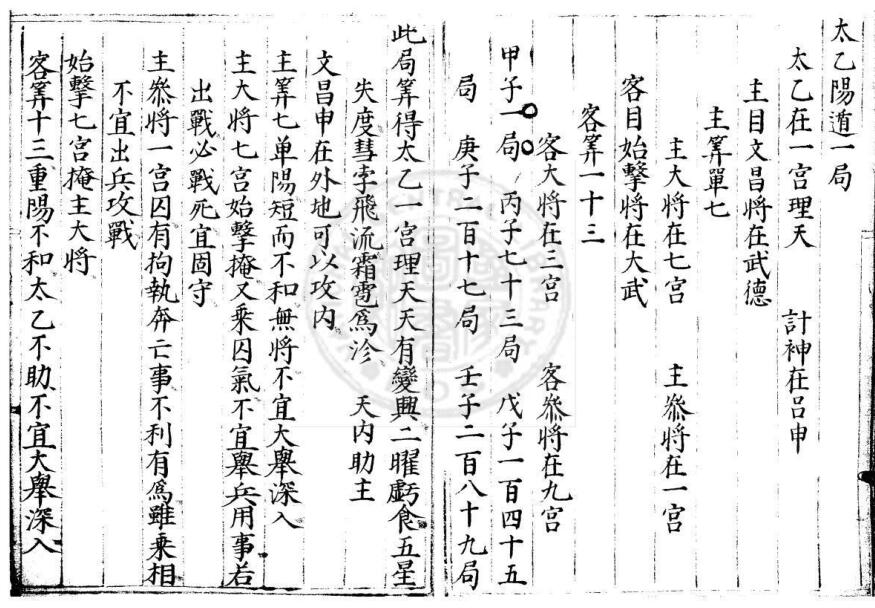 太乙陽道一局
太乙在一宮理天　計神在呂申
主目文昌將在武德
主筭單七
主大將在七宮　主叅將在一宮
客目始擊將在大武
客筭一十三
客大將在三宮　客叅將在九宮
甲子一局　丙子七十三局　戊子一百四十五
局　庚子二百十七局　壬子二百八十九局
此局筭得太乙一宮理天天有變興二曜虧食五星
失度彗孛飛流霜雹爲沴　天內助主
文昌申在外地可以攻內
主筭七单陽短而不和無將不宜大舉深入
主大將七宮始擊掩又乘囚氣不宜舉兵用事若
出戰必戰死宜固守
主叅將一宮囚有拘執奔亡事不利有爲雖乘相
不宜出兵攻戰
始擊七宮掩主大將
客筭十三重陽不和太乙不助不宜大舉深入